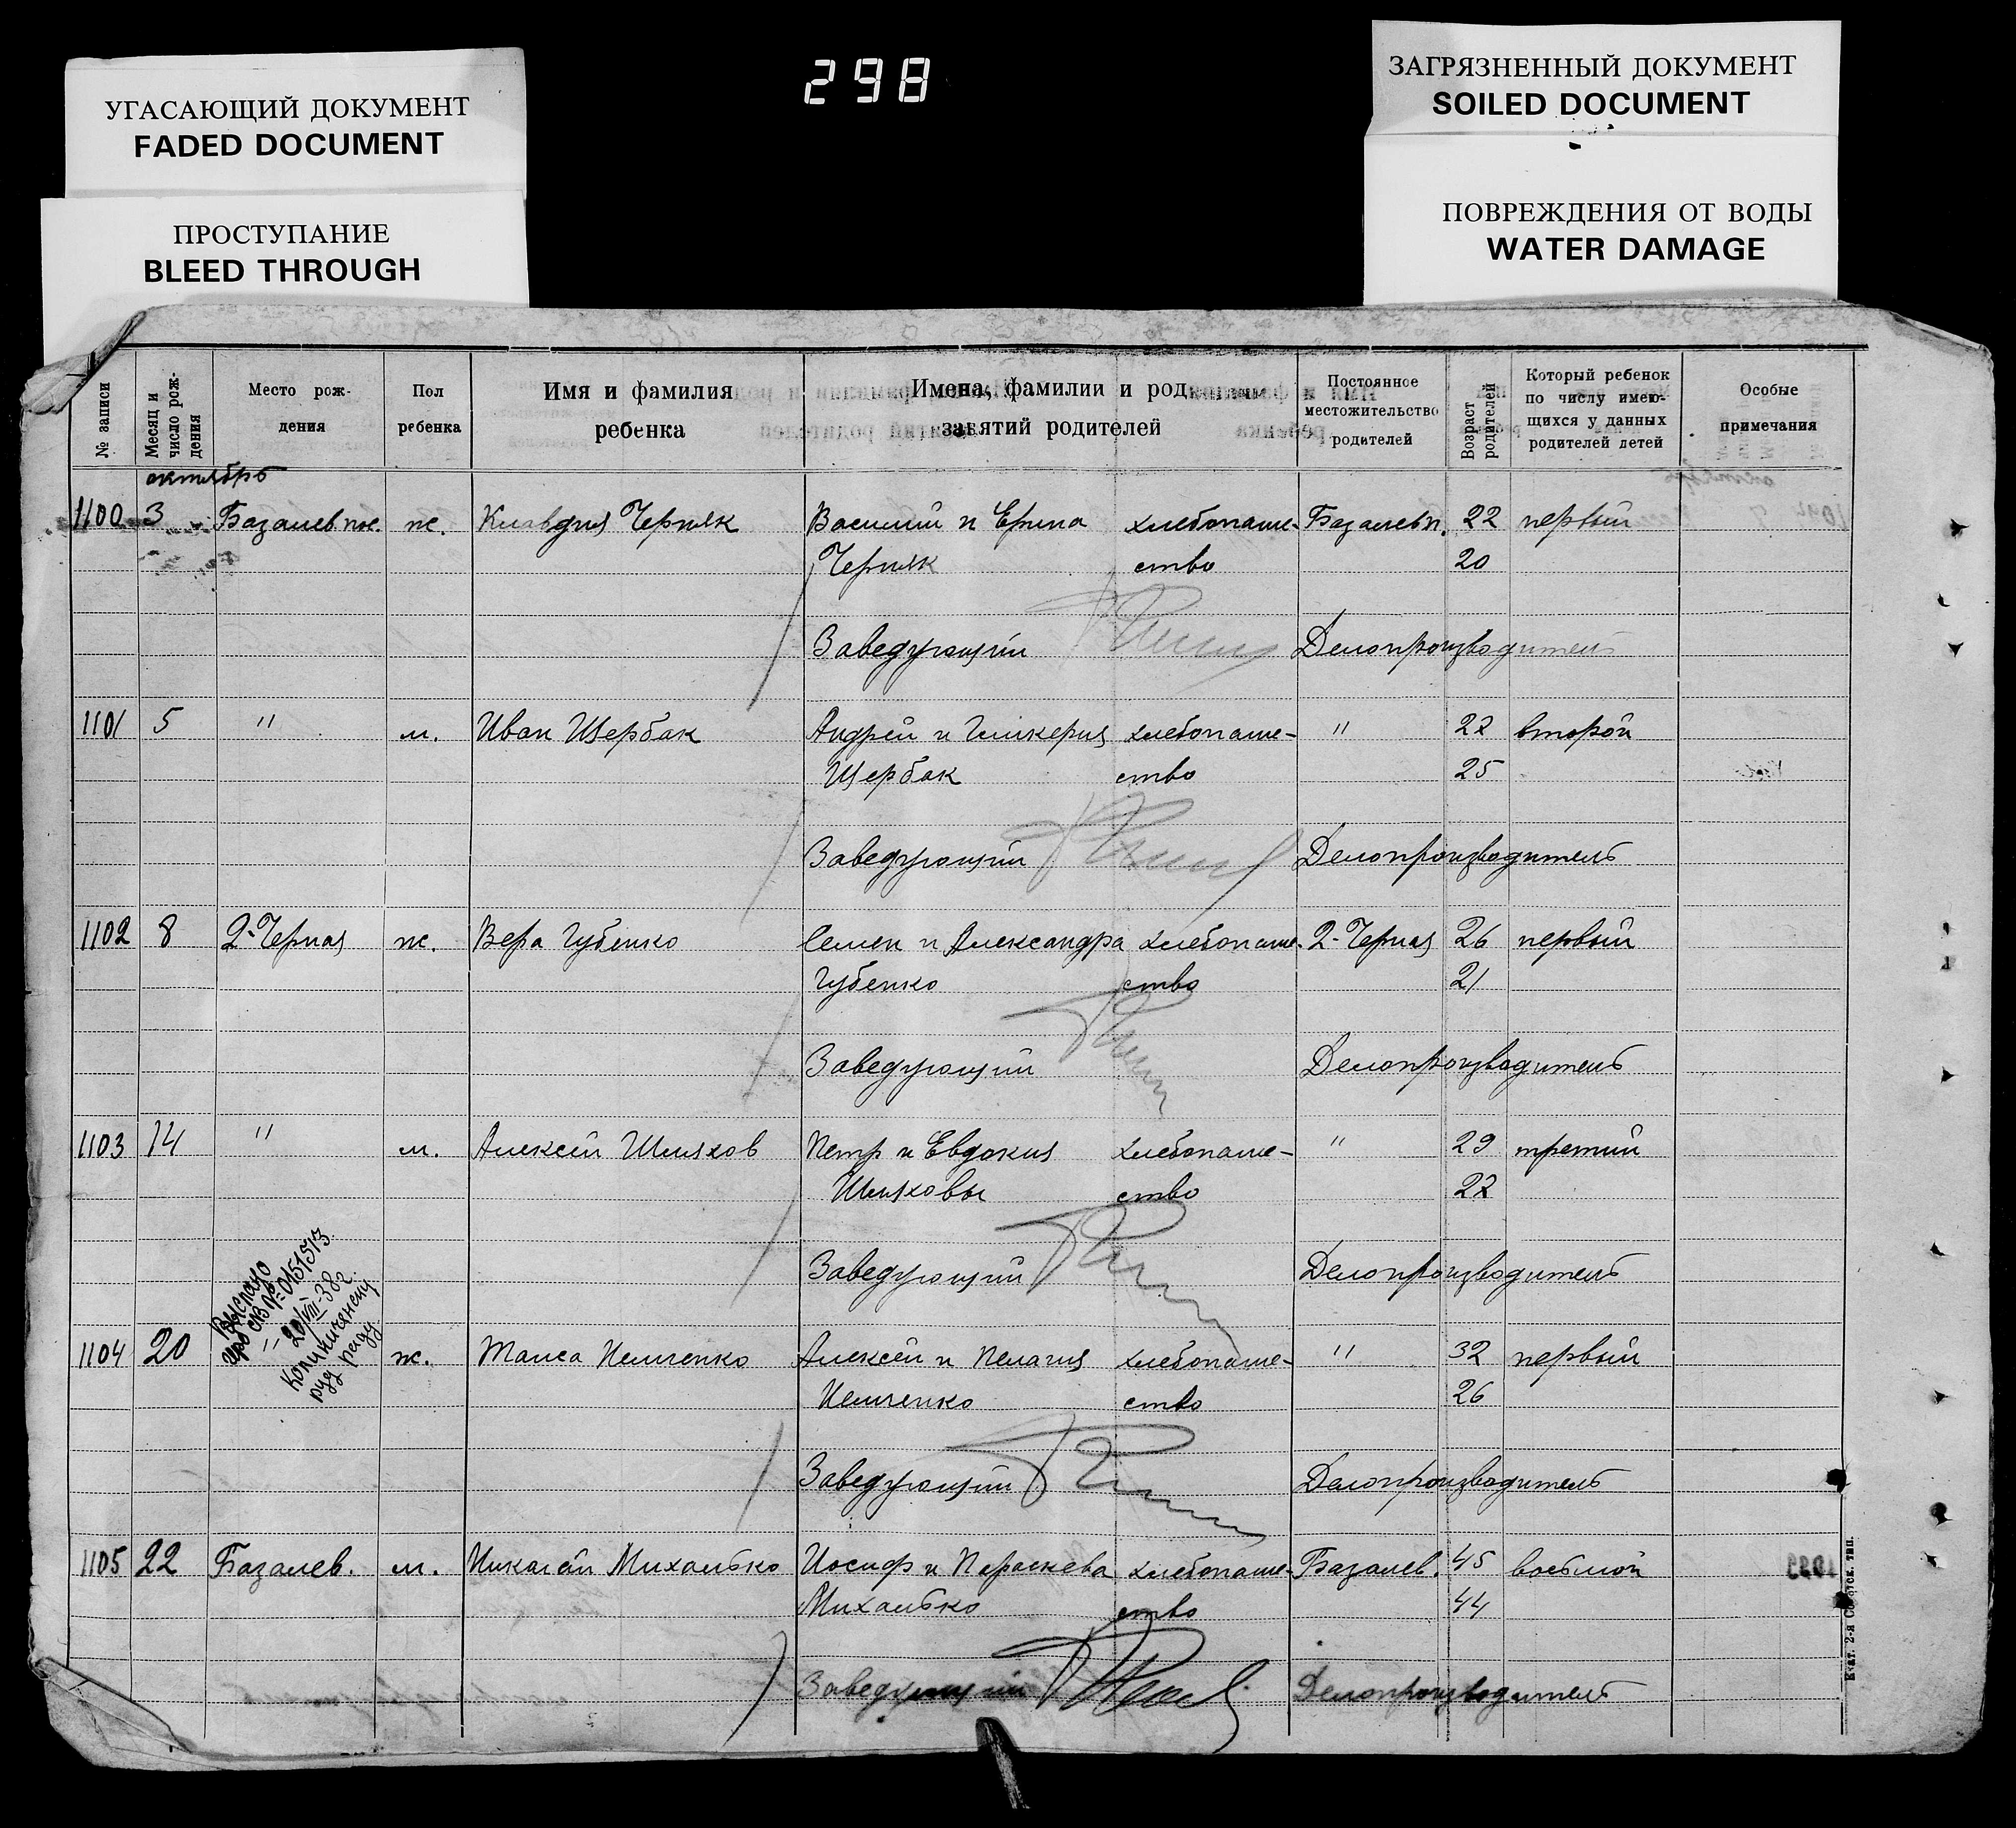 298
УГАСАЮЩИЙ ДОКУМЕНТ
FADED DOCUMENT
ПРОСТУПАНИЕ
BLEED THROUGH
ЗАГРЯЗНЕННЫЙ ДОКУМЕНТ
SOILED DOCUMENT
ПОВРЕЖДЕНИЯ ОТ ВОДЫ
WATER DAMAGE
№ записи
Месяц и число рождения
Место рож-
дения
Пол
ребенка
Имя и фамилия
ребенка
Имена, фамилии и род
занятий родителей
Постоянное
местожительство
родителей
Возраст
родителей
Который ребенок
по числу имею-
щихся у данных
родителей детей
Особые
примечания
октябрь
1100 3 Базалев пос. ж. Клавдия Черняк Василий и Ерина хлебопаше- Базалев п. 22 первый
Черняк ство 20
Заведующий Делопроизводитель
1101 5 " м. Иван Щербак Андрей и Гликерия хлебопаше- " 22 второй
Щербак ство 25
Заведующий Делопроизводитель
1102 8 2-Черная ж. Вера Губенко Семен и Александра хлебопаше- 2-Черная 26 первый
Губенко ство 21
Заведующий Делопроизводитель
1103 14 " м. Алексей Шляхов Петр и Евдокия хлебопаше- " 29 третий
Шляховы ство 22
Заведующий Делопроизводитель
Выслано
№ 0151513
20/VIII-38г.
1104 20 " ж. Таиса Немченко Алексей и Пелагия хлебопаше- " 32 первый
Немченко ство 26
Заведующий Делопроизводитель
1105 22 Базалев. м. Николай Михалько Иосиф и Параскева хлебопаше- Базалев. 45 восьмой
Михалько ство 44
Заведующий Делопроизводитель